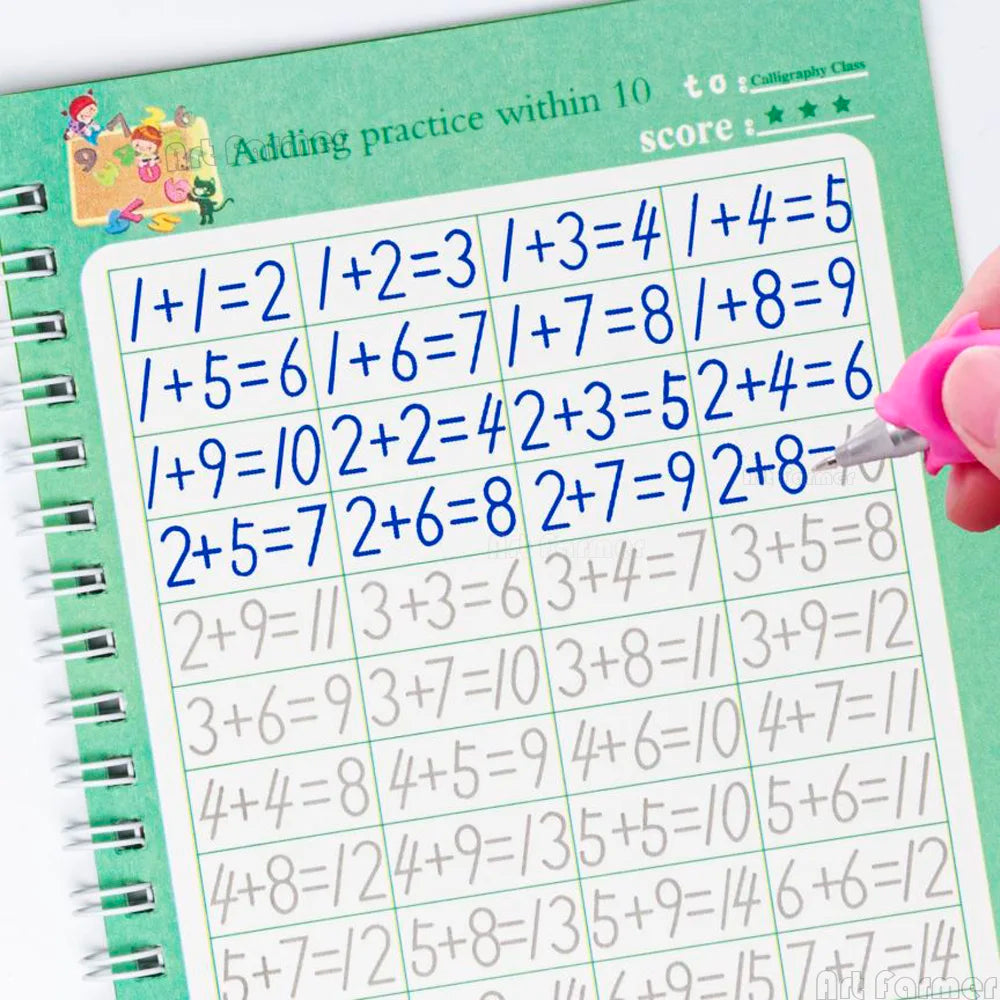 Adding practice within 10
to: Calligraphy Class
score:
Art Farmer
1+1=2 1+2=3 1+3=4 1+4=5
1+5=6 1+6=7 1+7=8 1+8=9
1+9=10 2+2=4 2+3=5 2+4=6
2+5=7 2+6=8 2+7=9 2+8=10
Art Farmer
Art Farmer
2+9=11 3+3=6 3+4=7 3+5=8
3+6=9 3+7=10 3+8=11 3+9=12
4+4=8 4+5=9 4+6=10 4+7=11
4+8=12 4+9=13 5+5=10 5+6=11
5+7=12 5+8=13 5+9=14 6+6=12
6+9=15 7+7=14
Art Farmer